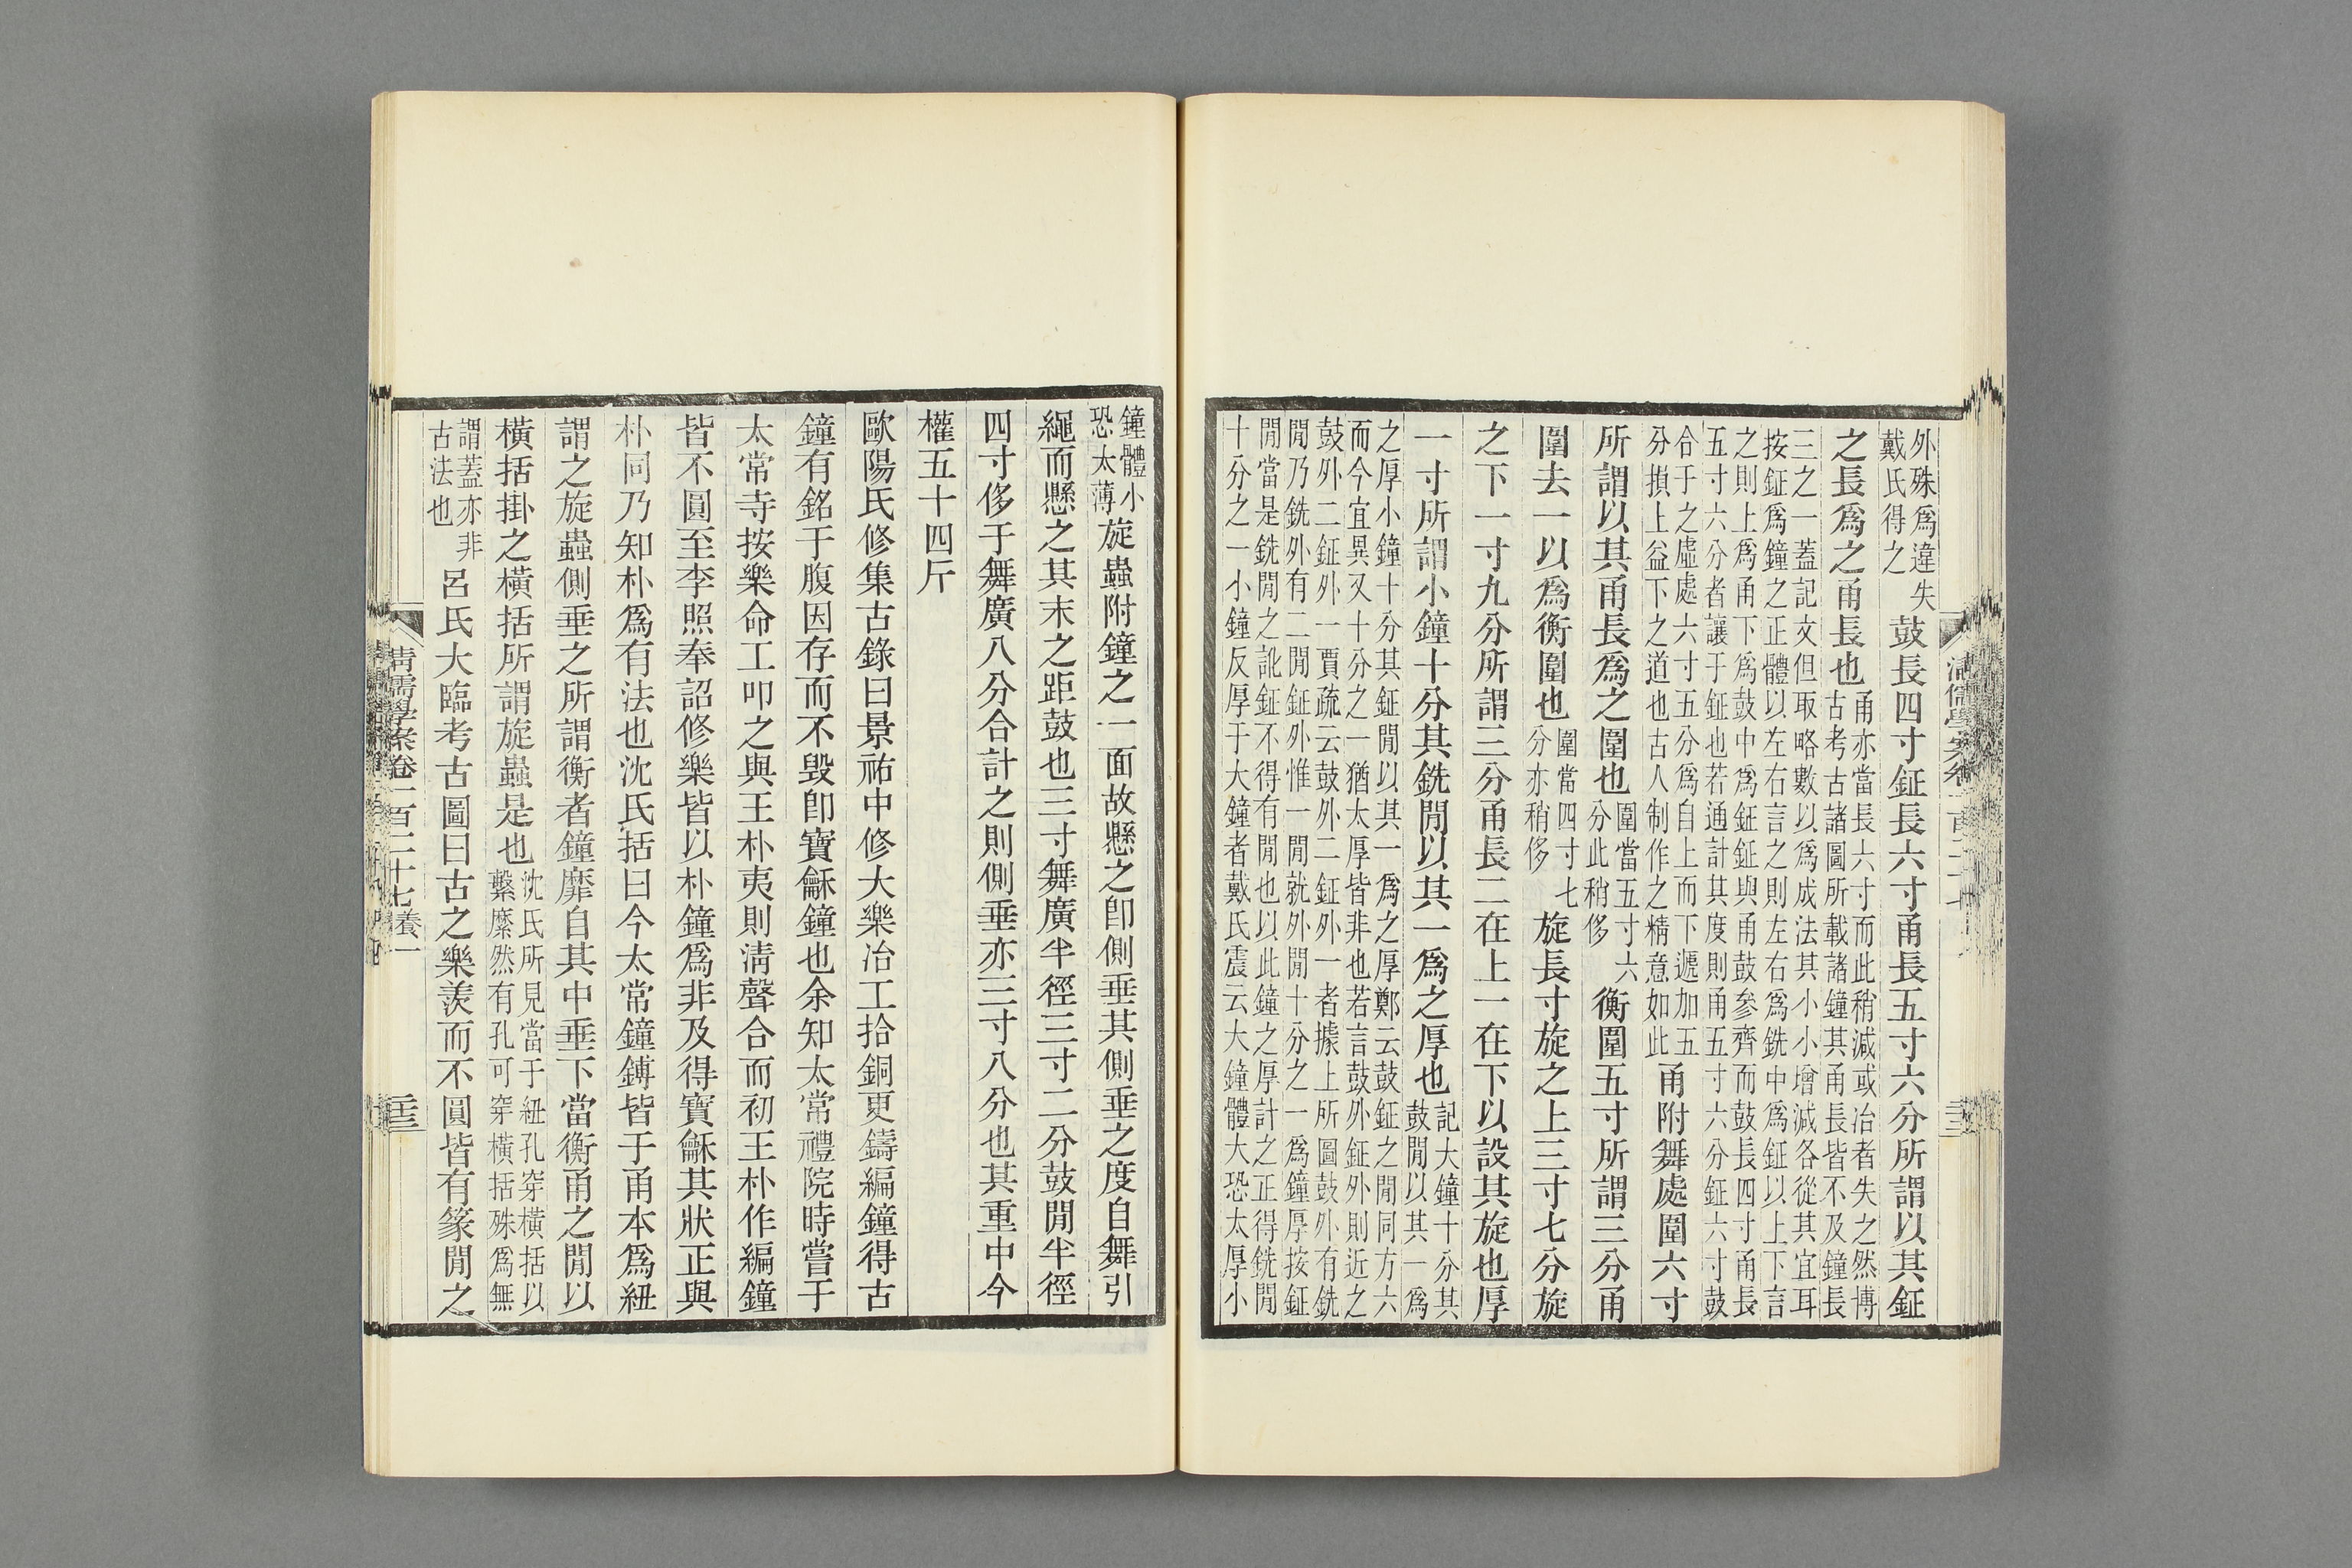 外殊爲違失
戴氏得之
鼓長四寸鉦長六寸甬長五寸六分所謂以其鉦
之長爲之甬長也
甬亦當長六寸而此稍減或冶者失之然博
古考古諸圖所載諸鐘其甬長皆不及鐘長
三之一蓋記文但取略數以爲成法其小小增減各從其宜耳
按鉦爲鐘之正體以左右言之則左右爲銑中爲鉦以上下言
之則上爲甬下爲鼓中爲鉦鉦與甬鼓參齊而鼓長四寸甬長
五寸六分者讓于鉦也若通計其度則甬五寸六分鉦六寸鼓
合于之虛處六寸五分爲自上而下遞加五
分損上益下之道也古人制作之精意如此
甬附舞處圍六寸
所謂以其甬長爲之圍也
圍當五寸六
分此稍侈
衡圍五寸所謂三分甬
圍去一以爲衡圍也
圍當四寸七
分亦稍侈
旋長寸旋之上三寸七分旋
之下一寸九分所謂三分甬長二在上一在下以設其旋也厚
一寸所謂小鐘十分其銑閒以其一爲之厚也
記大鐘十分其
鼓閒以其一爲
之厚小鐘十分其鉦閒以其一爲之厚鄭云鼓鉦之閒同方六
而今宜異又十分之一猶太厚皆非也若言鼓外鉦外則近之
鼓外二鉦外一賈疏云鼓外二鉦外一者據上所圖鼓外有銑
閒乃銑外有二閒鉦外惟一閒就外閒十分之一爲鐘厚按鉦
閒當是銑閒之訛鉦不得有閒也以此鐘之厚計之正得銑閒
十分之一小鐘反厚于大鐘者戴氏震云大鐘體大恐太厚小
鐘體小
恐太薄
旋蟲附鐘之一面故懸之卽側垂其側垂之度自舞引
繩而懸之其末之距鼓也三寸舞廣半徑三寸二分鼓閒半徑
四寸侈于舞廣八分合計之則側垂亦三寸八分也其重中今
權五十四斤
歐陽氏修集古錄曰景祐中修大樂冶工拾銅更鑄編鐘得古
鐘有銘于腹因存而不毀卽寶龢鐘也余知太常禮院時嘗于
太常寺按樂命工叩之與王朴夷則清聲合而初王朴作編鐘
皆不圓至李照奉詔修樂皆以朴鐘爲非及得寶龢其狀正與
朴同乃知朴爲有法也沈氏括曰今太常鐘鎛皆于甬本爲紐
謂之旋蟲側垂之所謂衡者鐘靡自其中垂下當衡甬之閒以
橫括掛之橫括所謂旋蟲是也
沈氏所見當于紐孔穿橫括以
繫縻然有孔可穿橫括殊爲無
謂蓋亦非
古法也
呂氏大臨考古圖曰古之樂羨而不圓皆有篆閒之
清儒學案卷一百二十七